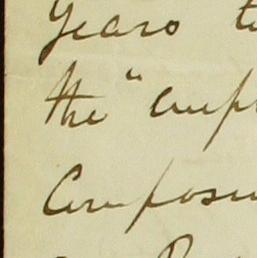 Years t
the "emp
Composi